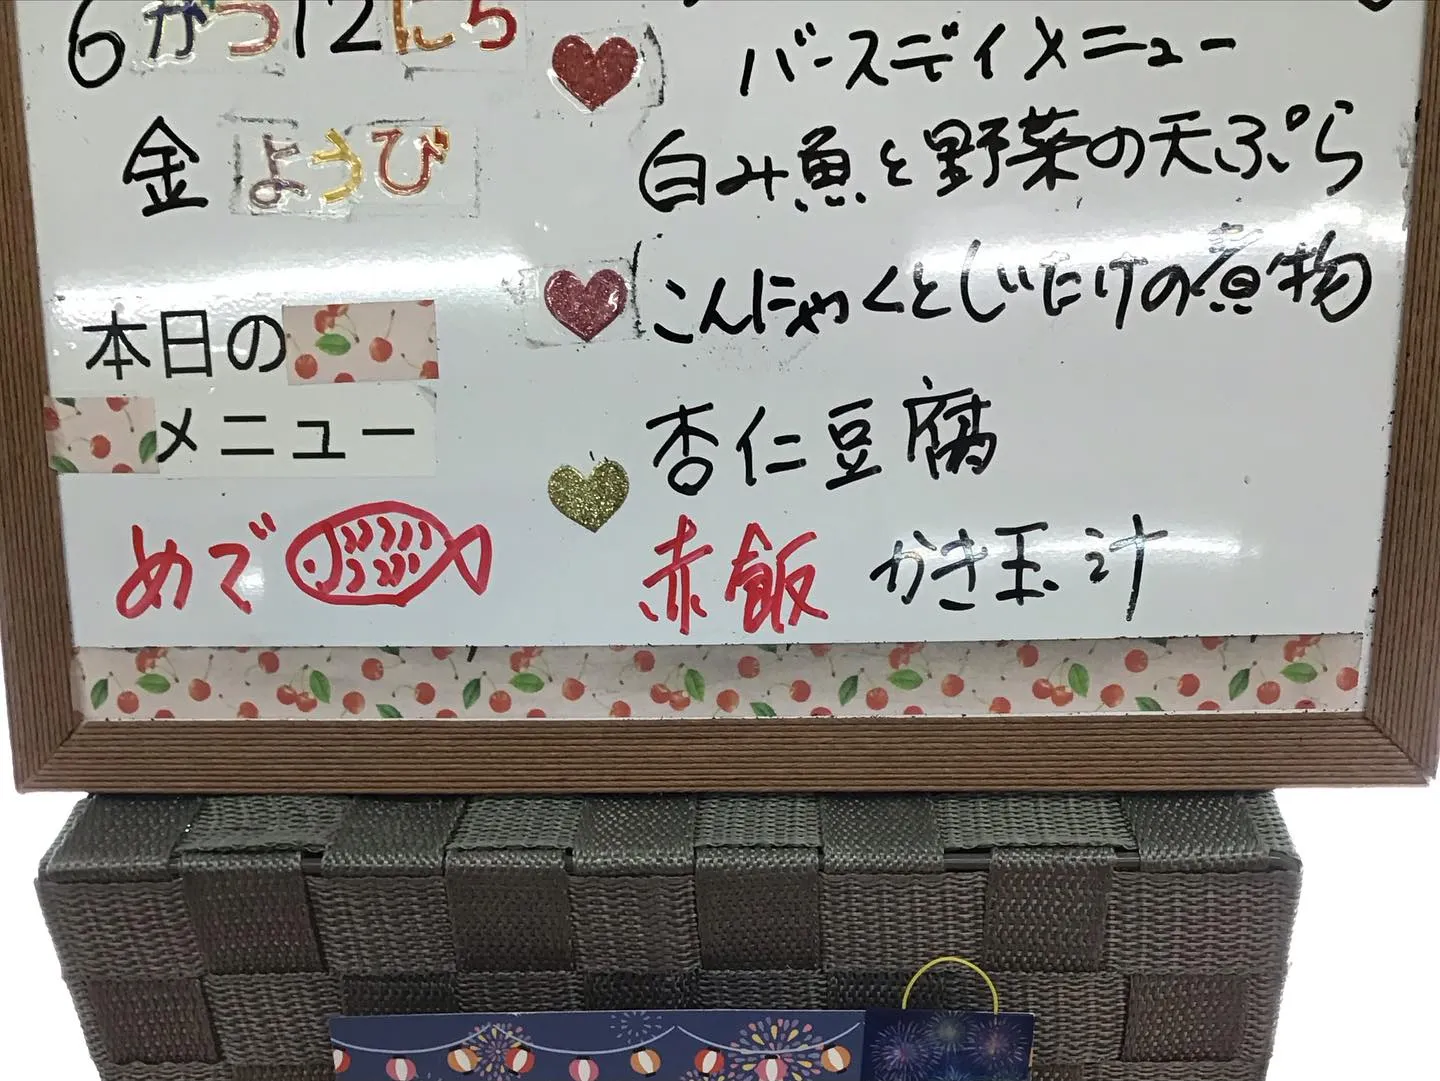 6がつ12にち
金ようび
本日の
メニュー
めで
バースデイメニュー
白み魚と野菜の天ぷら
こんにゃくとしいたけの煮物
杏仁豆腐
赤飯 かき玉汁